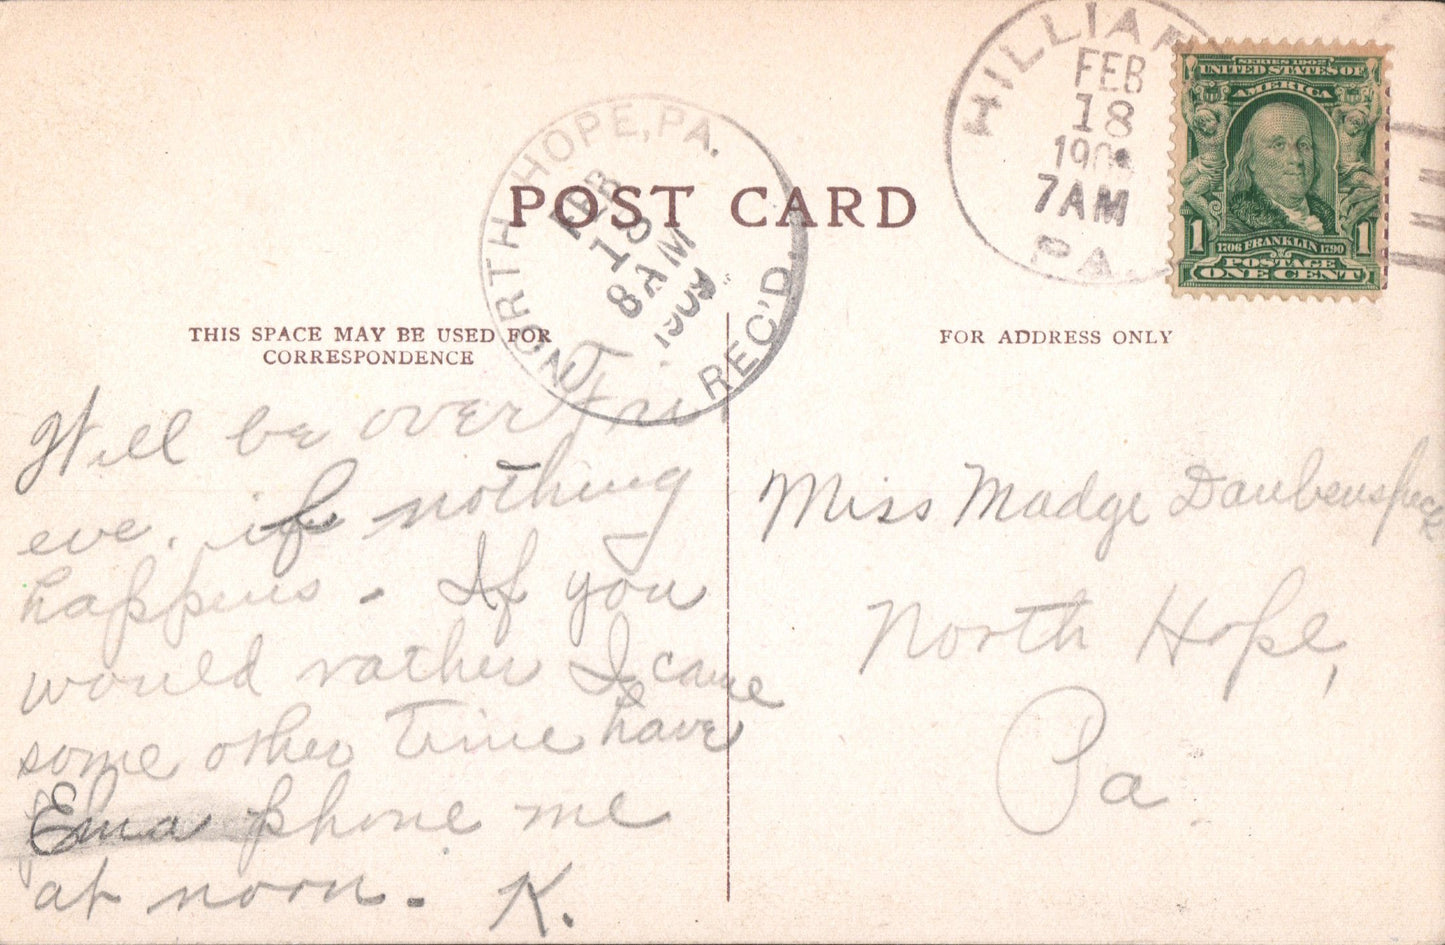 HILLIAR
FEB
18
190
7AM
PA.
SERIES 1902
UNITED STATES OF
AMERICA
1706 FRANKLIN 1790
1 1
POSTAGE
ONE CENT
NORTH HOPE, PA.
FEB
18
8 AM
1909
REC'D.
POST CARD
THIS SPACE MAY BE USED FOR
CORRESPONDENCE
FOR ADDRESS ONLY
Will be over Fri
eve. if nothing
happens. If you
would rather I came
some other time have
Ema phone me
at noon. K.
Miss Madge Daubenspeck
North Hope,
Pa